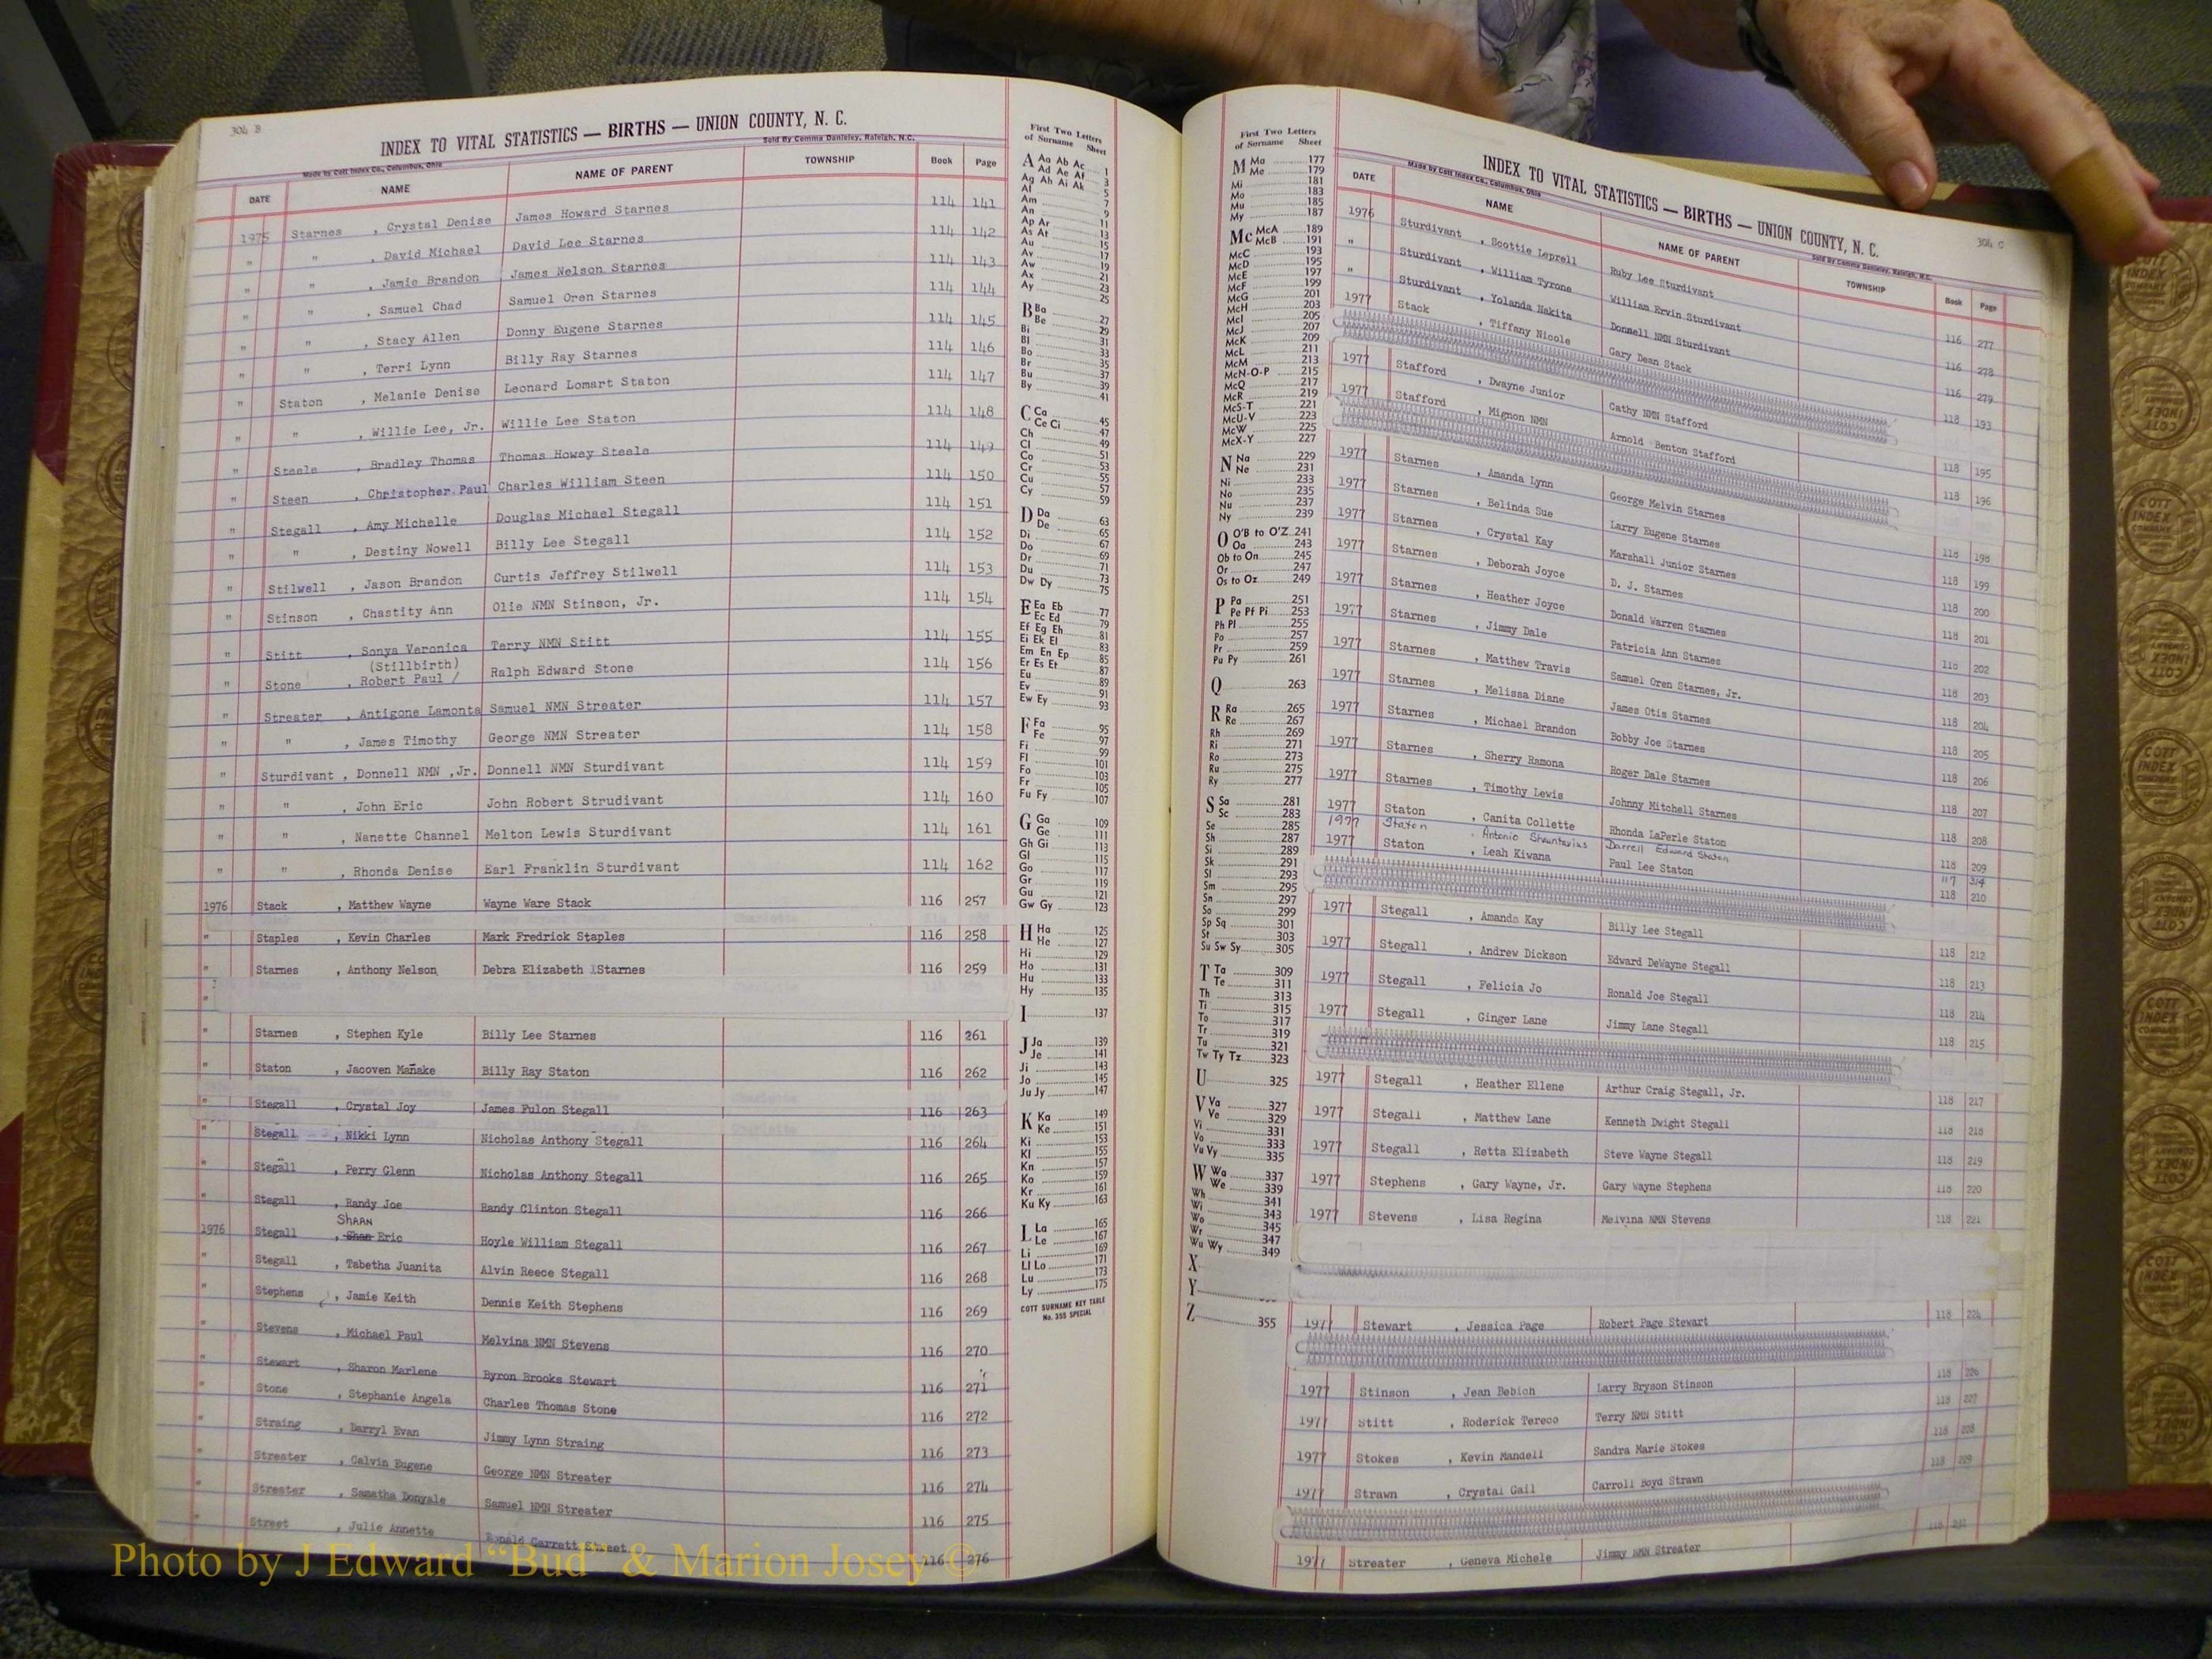 304 B
INDEX TO VITAL STATISTICS — BIRTHS — UNION COUNTY, N. C.
Made by Cott Index Co., Columbus, Ohio Sold By Comma Danieley, Raleigh, N.C.
DATE NAME NAME OF PARENT TOWNSHIP Book Page
1975 Starnes , Crystal Denise James Howard Starnes 114 141
" " , David Michael David Lee Starnes 114 142
" " , Jamie Brandon James Nelson Starnes 114 143
" " , Samuel Chad Samuel Oren Starnes 114 144
" " , Stacy Allen Donny Eugene Starnes 114 145
" " , Terri Lynn Billy Ray Starnes 114 146
" Staton , Melanie Denise Leonard Lomart Staton 114 147
" " , Willie Lee, Jr. Willie Lee Staton 114 148
" Steele , Bradley Thomas Thomas Howey Steele 114 149
" Steen , Christopher Paul Charles William Steen 114 150
" Stegall , Amy Michelle Douglas Michael Stegall 114 151
" " , Destiny Nowell Billy Lee Stegall 114 152
" Stilwell , Jason Brandon Curtis Jeffrey Stilwell 114 153
" Stinson , Chastity Ann Olie NMN Stinson, Jr. 114 154
" Stitt , Sonya Veronica Terry NMN Stitt 114 155
(Stillbirth)
" Stone , Robert Paul / Ralph Edward Stone 114 156
" Streater , Antigone Lamonta Samuel NMN Streater 114 157
" " , James Timothy George NMN Streater 114 158
" Sturdivant , Donnell NMN ,Jr. Donnell NMN Sturdivant 114 159
" " , John Eric John Robert Strudivant 114 160
" " , Nanette Channel Melton Lewis Sturdivant 114 161
" " , Rhonda Denise Earl Franklin Sturdivant 114 162
1976 Stack , Matthew Wayne Wayne Ware Stack 116 257
" Staples , Kevin Charles Mark Fredrick Staples 116 258
" Starnes , Anthony Nelson Debra Elizabeth Starnes 116 259
" Starnes , Stephen Kyle Billy Lee Starnes 116 261
" Staton , Jacoven Mañake Billy Ray Staton 116 262
" Stegall , Crystal Joy James Fulon Stegall 116 263
" Stegall , Nikki Lynn Nicholas Anthony Stegall 116 264
" Stegall , Perry Glenn Nicholas Anthony Stegall 116 265
" Stegall , Randy Joe Randy Clinton Stegall 116 266
SHAAN
1976 Stegall , Shan Eric Hoyle William Stegall 116 267
" Stegall , Tabetha Juanita Alvin Reece Stegall 116 268
" Stephens , Jamie Keith Dennis Keith Stephens 116 269
" Stevens , Michael Paul Melvina NMN Stevens 116 270
" Stewart , Sharon Marlene Byron Brooks Stewart 116 271
" Stone , Stephanie Angela Charles Thomas Stone 116 272
" Straing , Darryl Evan Jimmy Lynn Straing 116 273
" Streater , Calvin Eugene George NMN Streater 116 274
" Streater , Samatha Donyale Samuel NMN Streater 116 275
" Street , Julie Annette Ronald Garrett Street 116 276
First Two Letters
of Surname Sheet
A Aa Ab Ac 1
Ad Ae Af 3
Ag Ah Ai Ak 5
Al 7
Am 9
An 11
Ap Ar 13
As At 15
Au 17
Av 19
Aw 21
Ax 23
Ay 25
B Ba 27
Be 29
Bi 31
Bl 33
Bo 35
Br 37
Bu 39
By 41
C Ca 45
Ce Ci 47
Ch 49
Cl 51
Co 53
Cr 55
Cu 57
Cy 59
D Da 63
De 65
Di 67
Do 69
Dr 71
Du 73
Dw Dy 75
E Ea Eb 77
Ec Ed 79
Ef Eg Eh 81
Ei Ek El 83
Em En Ep 85
Er Es Et 87
Eu 89
Ev 91
Ew Ey 93
F Fa 95
Fe 97
Fi 99
Fl 101
Fo 103
Fr 105
Fu Fy 107
G Ga 109
Ge 111
Gh Gi 113
Gl 115
Go 117
Gr 119
Gu 121
Gw Gy 123
H Ha 125
He 127
Hi 129
Ho 131
Hu 133
Hy 135
I 137
J Ja 139
Je 141
Ji 143
Jo 145
Ju Jy 147
K Ka 149
Ke 151
Ki 153
Kl 155
Kn 157
Ko 159
Kr 161
Ku Ky 163
L La 165
Le 167
Li 169
Ll Lo 171
Lu 173
Ly 175
COTT SURNAME KEY TABLE
No. 355 SPECIAL
First Two Letters
of Surname Sheet
M Ma 177
Me 179
Mi 181
Mo 183
Mu 185
My 187
Mc McA 189
McB 191
McC 193
McD 195
McE 197
McF 199
McG 201
McH 203
McI 205
McJ 207
McK 209
McL 211
McM 213
McN-O-P 215
McQ 217
McR 219
McS-T 221
McU-V 223
McW 225
McX-Y 227
N Na 229
Ne 231
Ni 233
No 235
Nu 237
Ny 239
O O'B to O'Z 241
Oa 243
Ob to On 245
Or 247
Os to Oz 249
P Pa 251
Pe Pf Pi 253
Ph Pl 255
Po 257
Pr 259
Pu Py 261
Q 263
R Ra 265
Re 267
Rh 269
Ri 271
Ro 273
Ru 275
Ry 277
S Sa 281
Sc 283
Se 285
Sh 287
Si 289
Sk 291
Sl 293
Sm 295
Sn 297
So 299
Sp Sq 301
St 303
Su Sw Sy 305
T Ta 309
Te 311
Th 313
Ti 315
To 317
Tr 319
Tu 321
Tw Ty Tz 323
U 325
V Va 327
Ve 329
Vi 331
Vo 333
Vu Vy 335
W Wa 337
We 339
Wh 341
Wi 343
Wo 345
Wr 347
Wu Wy 349
X
Y
Z 355
304 C
INDEX TO VITAL STATISTICS — BIRTHS — UNION COUNTY, N. C.
Made by Cott Index Co., Columbus, Ohio Sold By Comma Danieley, Raleigh, N.C.
DATE NAME NAME OF PARENT TOWNSHIP Book Page
1976 Sturdivant , Scottie Leprell Ruby Lee Sturdivant 116 277
" Sturdivant , William Tyrone William Ervin Sturdivant 116 278
" Sturdivant , Yolanda Nakita Donnell NMN Sturdivant 116 279
1977 Stack , Tiffany Nicole Gary Dean Stack 118 193
1977 Stafford , Dwayne Junior Cathy NMN Stafford 118 195
1977 Stafford , Mignon NMN Arnold Benton Stafford 118 196
1977 Starnes , Amanda Lynn George Melvin Starnes 118 198
1977 Starnes , Belinda Sue Larry Eugene Starnes 118 199
1977 Starnes , Crystal Kay Marshall Junior Starnes 118 200
1977 Starnes , Deborah Joyce D. J. Starnes 118 201
1977 Starnes , Heather Joyce Donald Warren Starnes 118 202
1977 Starnes , Jimmy Dale Patricia Ann Starnes 118 203
1977 Starnes , Matthew Travis Samuel Oren Starnes, Jr. 118 204
1977 Starnes , Melissa Diane James Otis Starnes 118 205
1977 Starnes , Michael Brandon Bobby Joe Starnes 118 206
1977 Starnes , Sherry Ramona Roger Dale Starnes 118 207
1977 Starnes , Timothy Lewis Johnny Mitchell Starnes 118 208
1977 Staton , Canita Collette Rhonda LaPerle Staton 118 209
1977 Staton , Antonio Darrell Edward Staton 117 314
1977 Staton , Leah Kiwana Paul Lee Staton 118 210
1977 Stegall , Amanda Kay Billy Lee Stegall 118 212
1977 Stegall , Andrew Dickson Edward DeWayne Stegall 118 213
1977 Stegall , Felicia Jo Ronald Joe Stegall 118 214
1977 Stegall , Ginger Lane Jimmy Lane Stegall 118 215
1977 Stegall , Heather Ellene Arthur Craig Stegall, Jr. 118 217
1977 Stegall , Matthew Lane Kenneth Dwight Stegall 118 218
1977 Stegall , Retta Elizabeth Steve Wayne Stegall 118 219
1977 Stephens , Gary Wayne, Jr. Gary Wayne Stephens 118 220
1977 Stevens , Lisa Regina Melvina NMN Stevens 118 221
1977 Stewart , Jessica Page Robert Page Stewart 118 224
1977 Stinson , Jean Bebich Larry Bryson Stinson 118 226
1977 Stitt , Roderick Tereco Terry NMN Stitt 118 227
1977 Stokes , Kevin Mandell Sandra Marie Stokes 118 228
1977 Strawn , Crystal Gail Carroll Boyd Strawn 118 229
1977 Streater , Geneva Michele Jimmy NMN Streater 118
Photo by J Edward “Bud” & Marion Josey ©